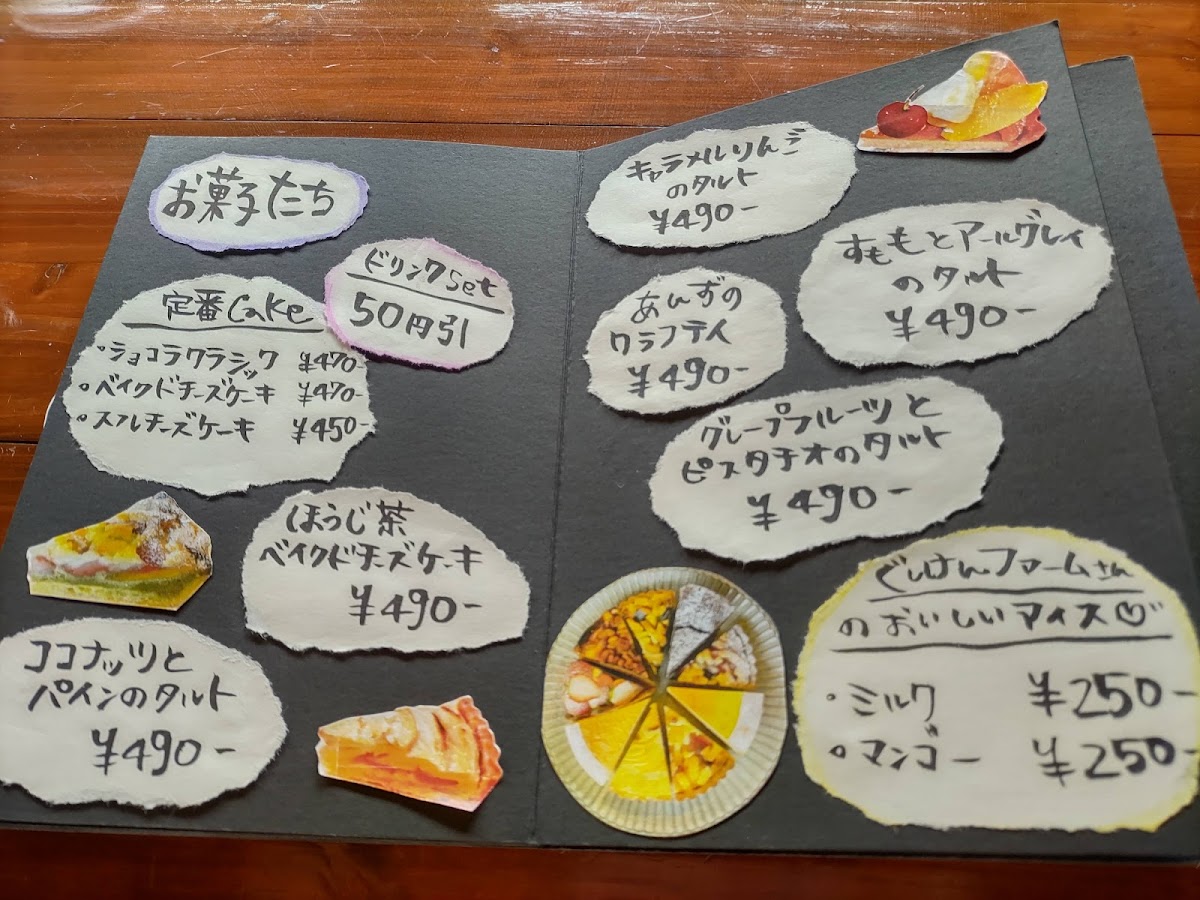 お菓子たち
ドリンクset
50円引
定番Cake
・ショコラクラシック ¥470-
・ベイクドチーズケーキ ¥470-
・スフレチーズケーキ ¥450
ほうじ茶
ベイクドチーズケーキ
¥490-
ココナッツと
パインのタルト
¥490-
キャラメルりんご
のタルト
¥490-
すももとアールグレイ
のタルト
¥490-
あんずの
クラフティ
¥490-
グレープフルーツと
ピスタチオのタルト
¥490-
ぐしけんファームさん
のおいしいアイス♡
・ミルク ¥250-
・マンゴー ¥250-